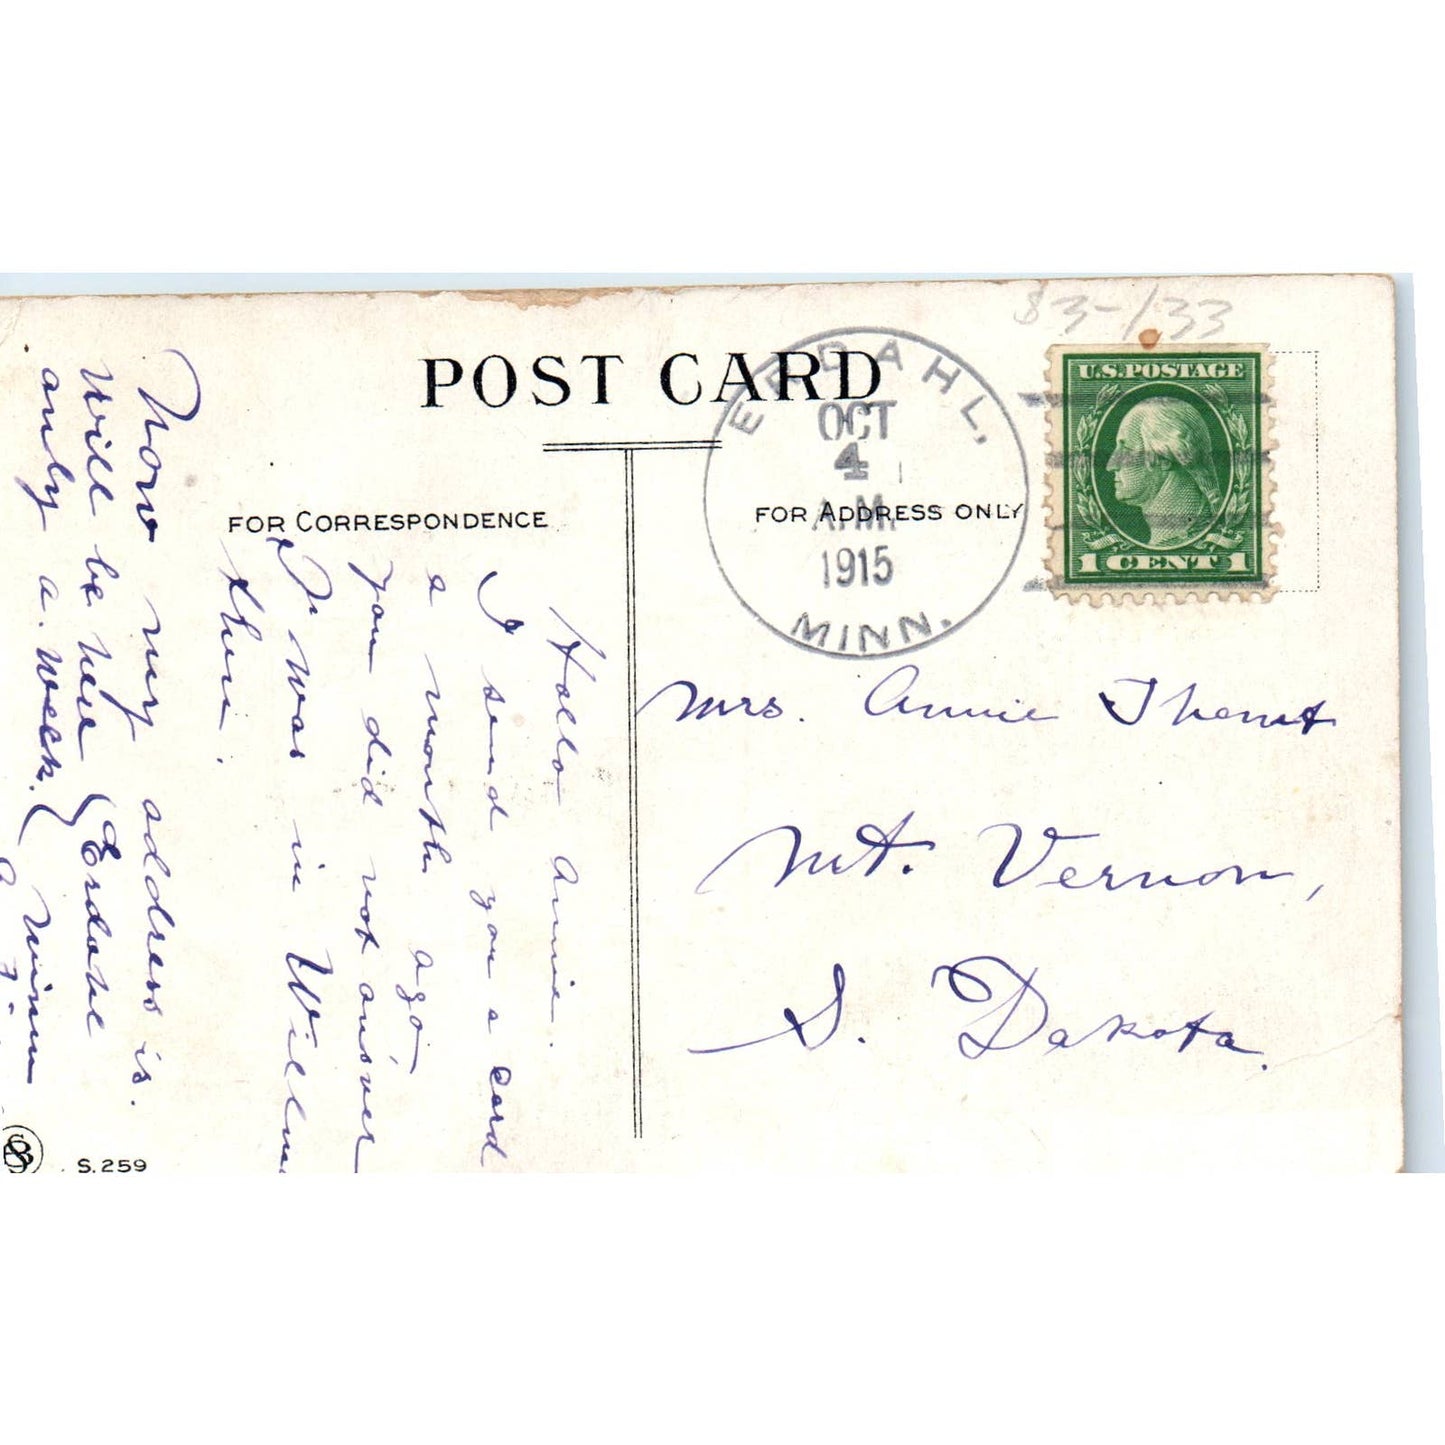 $3-133
POST CARD
ERDAHL,
OCT
4
A.M.
1915
MINN.
U.S. POSTAGE
1 CENT 1
FOR CORRESPONDENCE
FOR ADDRESS ONLY
Hallo Annie.
I send you a card
a month ago,
you did not answer
I was in Willm
then.
Now my address is.
Will be here (Erdahl
only a. week.( Minn
Mrs. Annie
Mt. Vernon,
S. Dakota.
S.259